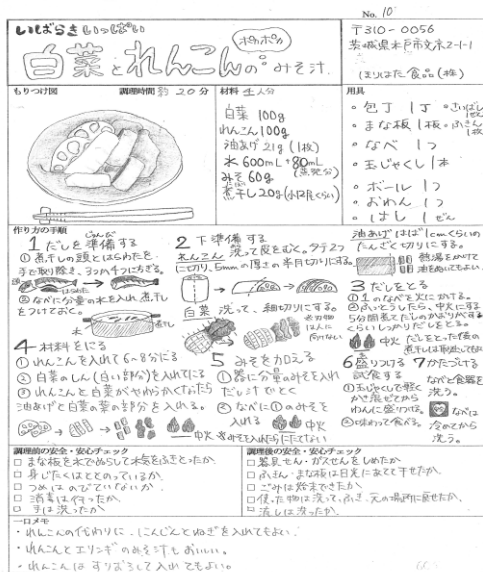 No. 10
いばらきいっぱい
ポカポカ
白菜とれんこんのみそ汁
〒310-0056
茨城県水戸市文京2-1-1
ほりはた食品(株)
もりつけ図 調理時間 約20分
材料 4人分
用具
白菜 100g
れんこん 100g
油あげ 21g (1枚)
水 600mL+80mL
(蒸発分)
みそ 60g
煮干し 20g
・包丁 1丁
・まな板 1枚
・ふきん 1枚
・なべ 1つ
・玉じゃくし 1本
・ボール 1つ
・おわん 1つ
・はし 1ぜん
作り方の手順
1 だしを準備する
じゅんび
①煮干しの頭とはらわたを
手で取り除き、
②なべに分量の水を入れ煮干し
をつけておく。
水
煮干し
2 下準備する
れんこん 洗って皮をむく。
に切り、5mmの厚さの半月切りにする。
白菜 洗って、細切りにする。
油あげははば1cmくらいの
たんざく切りにする。
熱湯をかけて
油をぬいてもよい。
3 だしをとる
①1のなべを火にかける。
②ふっとうしたら、中火にする
5分間煮てだしのかおりがする
くらいしっかりだしをとる。
中火
だしをとった後の
煮干しは取り出してもよい
4 材料をにる
①れんこんを入れて6~8分にる
②白菜のしん(白い部分)を入れてにる
③れんこんと白菜がやわらかくなったら
油あげと白菜の葉の部分を入れる。
中火
5 みそを加える
①器に分量のみそを入れ
だし汁でとく
②なべに①のみそを
入れる
中火
※みそを入れたらにたたせない
6 盛りつける
試食する
①玉じゃくしで軽く
かき混ぜてから
わんに盛りつける。
②味わって食べる。
7 かたづける
なべと食器を
洗う。
なべは
冷めてから
洗う。
調理前の安全・安心チェック
□ まな板を水でぬらして水気をふきとったか
□ 身じたくはととのっているか
□ つめはのびていないか
□ 消毒は行ったか
□ 手は洗ったか
調理後の安全・安心チェック
□ 器具せん・ガスせんをしめたか
□ ふきん・まな板は日光にあてて干せたか
□ ごみは始末できたか
□ 使った物は洗って、ふき、元の場所に戻せたか
□ 流しは洗ったか
一口メモ
・れんこんの代わりに、にんじんとねぎを入れてもよい。
・れんこんとエリンギのみそ汁もおいしい。
・れんこんはすりおろして入れてもよい。